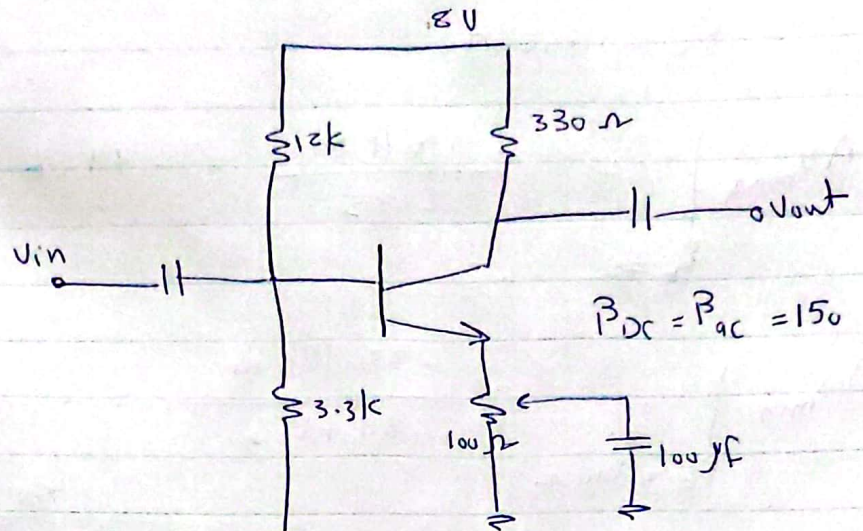 8 V
12k
330 Ω
Vout
Vin
βDC = βac = 150
3.3k
100 Ω
100 μf